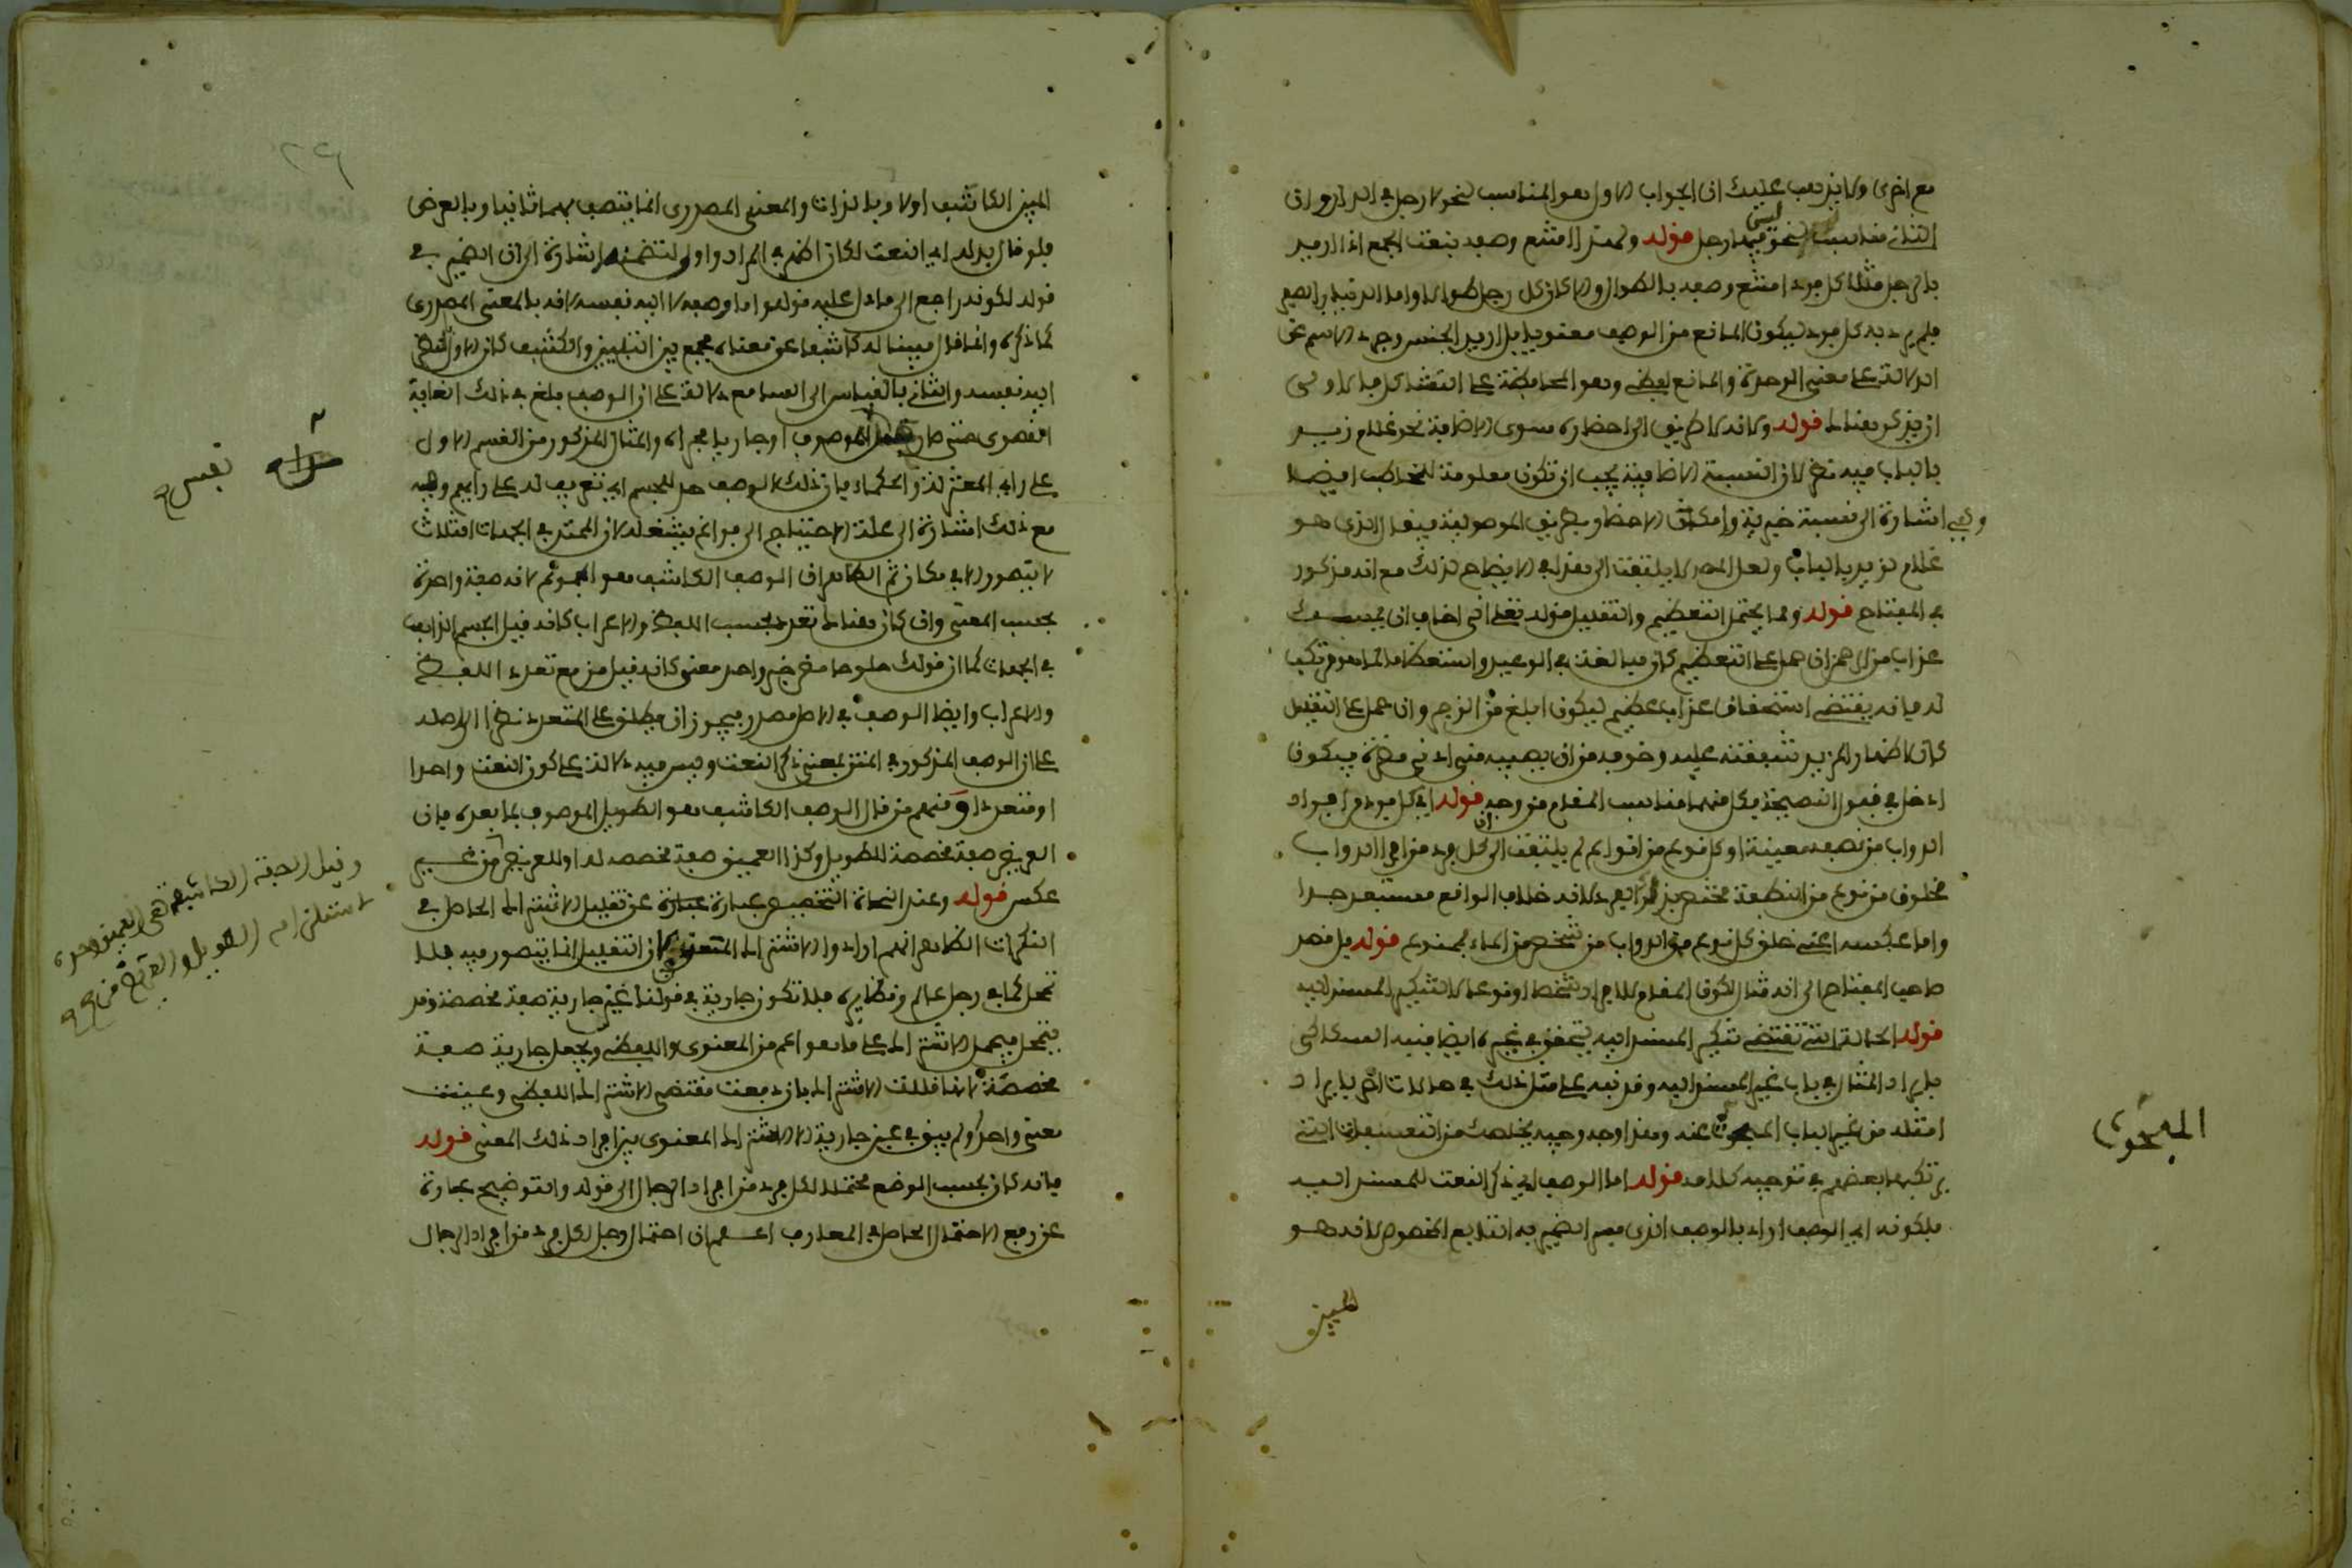 مع اخرى ولا يذهب عليك ان الجواب الاول هو المناسب لنحو لا رجل في الدار وان
الثاني مناسب لنحو ليس فيها رجل قوله ولهذا امتنع وصفه بنعت الجمع اذا اريد
بالرجل مثلا كل فرد امتنع وصفه بالطوال والا كان كل رجل طوالا واما الدنيار الصفر
فلم يرد به كل فرد ليكون المانع من الوصف معنويا بل اريد الجنس وجرد الاسم عن
الدلالة على معنى الوحدة والمانع لفظي وهو المحافظة على التشاكل فالاولى
ان يذكر هنا قوله ولانه لا طريق الى احضاره سوى الاضافة نحو غلام زيد
بالباب فيه نظر لان النسبة الاضافية يجب ان تكون معلومة للمخاطب ايضا
وهي اشارة الى نسبة خبرية وامكان الاحضار بطريق الموصولية فيقال الذي هو
غلام لزيد بالباب ولعل المصر لا يلتفت الى هذا في الايضاح لذلك مع انه مذكور
في المفتاح قوله ومما يحتمل التعظيم والتقليل قوله تعلى اني اخاف ان يمسك
عذاب من الرحمن ان حمل على التعظيم كان مبالغة في الوعيد واستعظاما لما هو مرتكب
له فانه يقتضي استحقاق عذاب عظيم ليكون ابلغ في الزجر وان حمل على التقليل
كان لاظهار المزيد شفقته عليه وخوفه من ان يصيبه منه ادنى مضرة فيكون
ادخل في قبول النصيحة فكل منهما مناسب المقام من وجه قوله اي كل فرد من افراد
الدواب من نطفة معينة او كل نوع من انواع لم يلتفت الى ان كل فرد من افراد الدواب
مخلوق من نوع من النطفة مختص بذلك الفرد لانه خلاف الواقع مستبعد جدا
واما عكسه اعني خلق كل نوع من الدواب من شخص من الماء فممنوع قوله بل قصد
صاحب المفتاح الى انه مثال لكون المقام للافراد شخصا او نوعا لا لتنكير المسند اليه
قوله الحالة التي تقتضي تنكير المسند اليه يتحقق في غيره ايضا فنبه السكاكي
بايراد المثال في باب غير المسند اليه وقد نبه على مثل ذلك في حالات اخر بايراد
امثلة من غير الباب المبحوث عنه وهذا وجه وجيه يخلصك من التعسفات التي
يرتكبها بعضهم في توجيه كلامه قوله اما الوصف اي ذكر النعت للمسند اليه
فلكونه اي الوصف اراد بالوصف الذي فسر الضمير به التابع المخصوص لانه هو
المبين
المبحوث
المبين الكاشف اولا وبالذات والمعنى المصدري انما يتصف بهما ثانيا وبالعرض
فلو قال بدله اي النعت لكان اظهر في المراد واولى لتضمنه اشارة الى ان الضمير في
قوله لكونه راجع الى ما دل عليه قوله واما وصفه لا اليه نفسه لانه بالمعنى المصدري
كما ذكره وانما قال مبينا له كاشفا عن معناه فجمع بين التبيين والكشف لان الاول بالنظر
اليه نفسه والثاني بالقياس الى السامع دلالة على ان الوصف بلغ في ذلك الغاية
القصوى حتى صار الموصوف او جاريا مجراه والمثال المذكور من القسم الاول
على راي المعتزلة والحكماء فان ذلك الوصف حد للجسم اي تعريف له على رايهم وفيه
مع ذلك اشارة الى علة الاحتياج الى فراغ يشغله لان الممتد في الجهات الثلاث
لا يتصور الا في مكان ثم الظاهر ان الوصف الكاشف هو المجموع لانه صفة واحدة
بحسب المعنى وان كان هناك تعدد بحسب اللفظ والاعراب كانه قيل الجسم الذاهب
في الجهات كما ان قولك حلو حامض خبر واحد معنى كانه قيل مز مع تعدد اللفظ
والاعراب وايضا الوصف في الاصل مصدر فيجوز ان يطلق على المتعدد نظرا الى اصله
على ان الوصف المذكور في المتن بمعنى ذكر النعت وليس فيه دلالة على كون النعت واحدا
او متعددا ومنهم من قال الوصف الكاشف هو الطويل الموصوف بما بعده فان
العريض صفة مخصصة للطويل وكذا العميق صفة مخصصة له او للعريض من غير
عكس قوله وعند النحاة التخصيص عبارة عن تقليل الاشتراك الحاصل في
النكرات الظاهر انهم ارادوا الاشتراك المعنوي لان التقليل انما يتصور فيه بلا
تمحل كما في رجل عالم ونظايره فلا تكون جارية في قولنا عين جارية صفة مخصصة وقد
يتمحل فيحمل الاشتراك على ما هو اعم من المعنوي واللفظي ويجعل جارية صفة
مخصصة لانها قللت الاشتراك بان دفعت مقتضى الاشتراك اللفظي وعينت
معنى واحدا ولم يبق في عين جارية الا الاشتراك المعنوي بين افراد ذلك المعنى قوله
فانه كان بحسب الوضع محتملا لكل فرد من افراد الرجال الى قوله والتوضيح عبارة
عن رفع الاحتمال الحاصل في المعارف اعلم ان احتمال رجل لكل فرد من افراد الرجال
نفس
وقيل الصفة الكاشفة هي العميق وحده
لاستلزامه الطويل والعريض